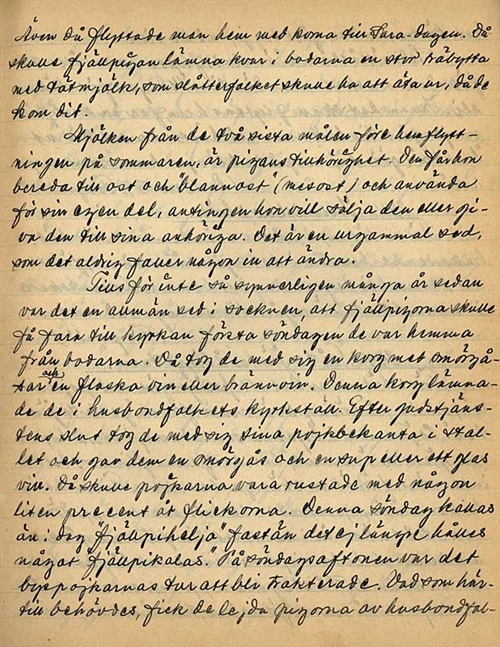 Även då flyttade man hem med korna till Sara-dagen. Då
skulle fjällpigan lämna kvar i bodarna en stor träbytta
med tätmjölk, som slåtterfolket skulle ha att äta ur, då de
kom dit.
Mjölken från de två sista målen före hemflytt-
ningen på sommaren, är pigans tillhörighet. Den får hon
bereda till ost och "blannost" (mesost) och använda
för sin egen del, antingen hon vill sälja den eller gi-
va den till sina anhöriga. Det är en urgammal sed,
som det aldrig faller någon in att ändra.
Tills för inte så synnerligen många år sedan
var det en allmän sed i socknen, att fjällpigorna skulle
få fara till kyrkan första söndagen de var hemma
från bodarna. Då tog de med sig en korg met smörgå-
sar och en flaska vin eller brännvin. Denna korg lämna-
de de i husbondfolkets kyrkstall. Efter gudstjäns-
tens slut tog de med sig sina pojkbekanta i stal-
let och gav dem en smörgås och en sup eller ett glas
vin. Då skulle pojkarna vara rustade med någon
liten precent åt flickorna. Denna söndag kallas
än i dag "fjällpihelja" fastän det ej längre hålles
något "fjällpikalas." På söndagsaftonen var det
bypojkarnas tur att bli trakterade. Vad som här-
till behövdes, fick de lejda pigorna av husbondfol-